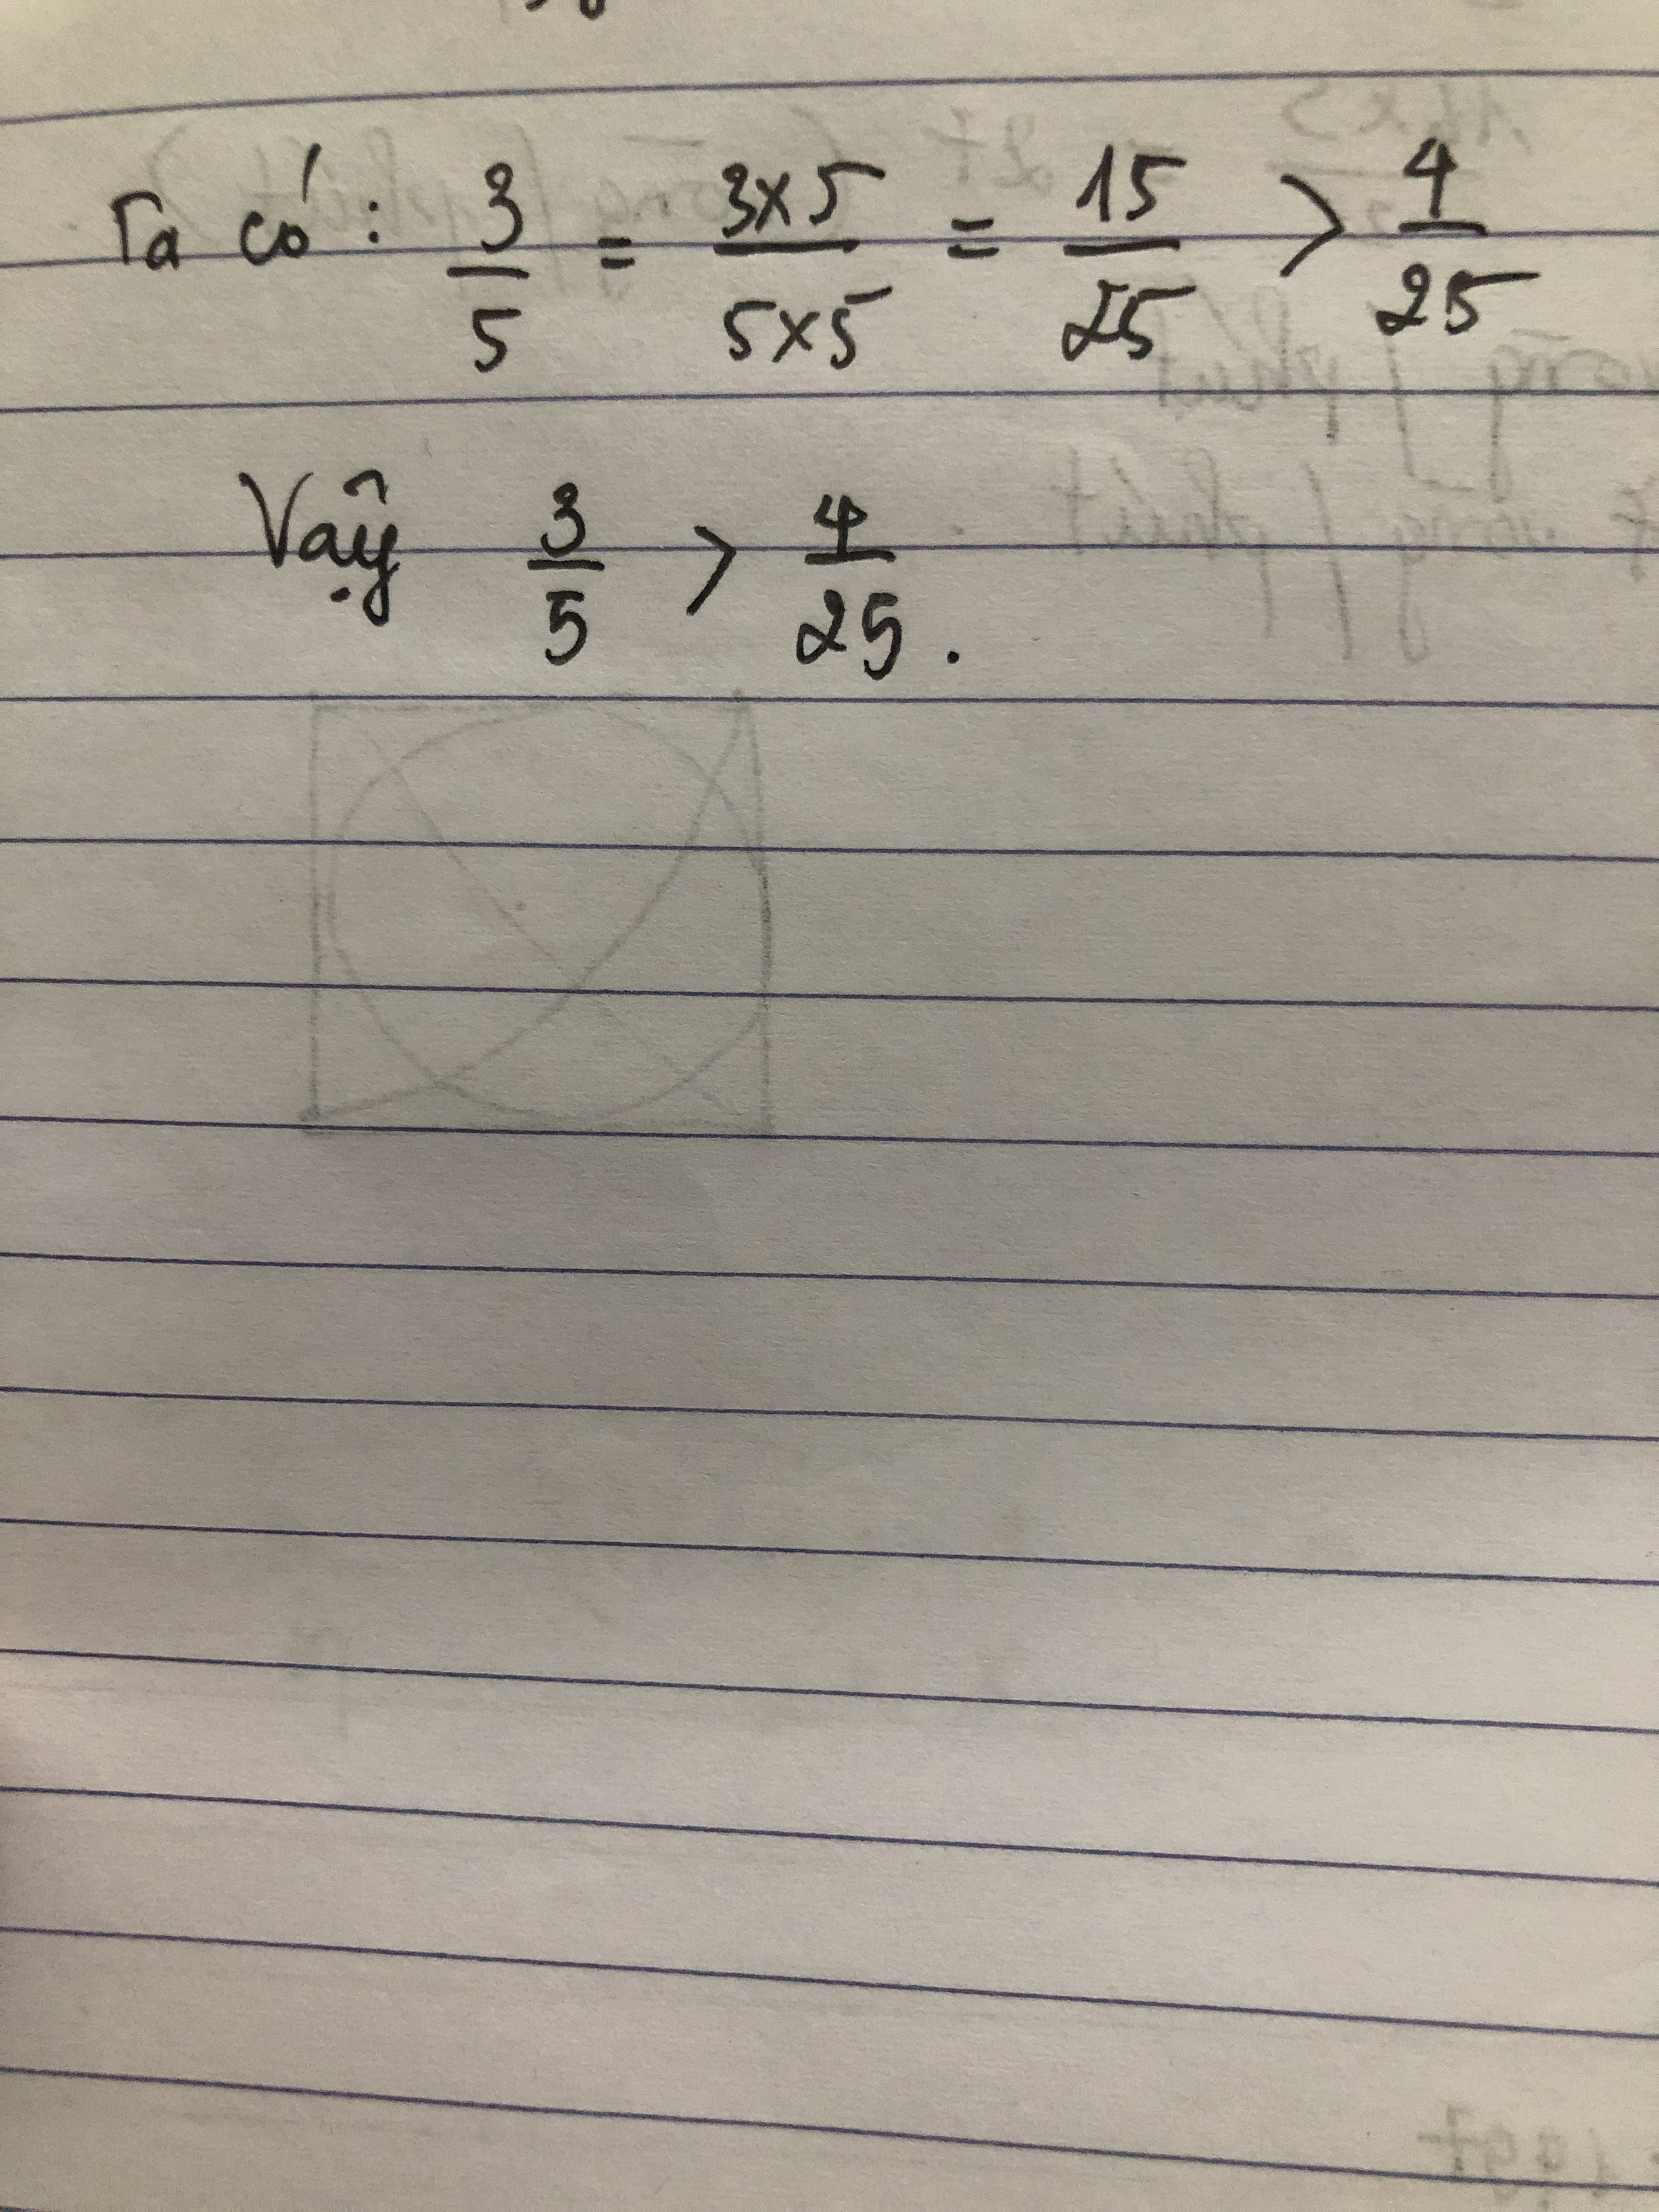 Ta có: 3/5 = 3x5/5x5 = 15/25 > 4/25
Vậy 3/5 > 4/25.